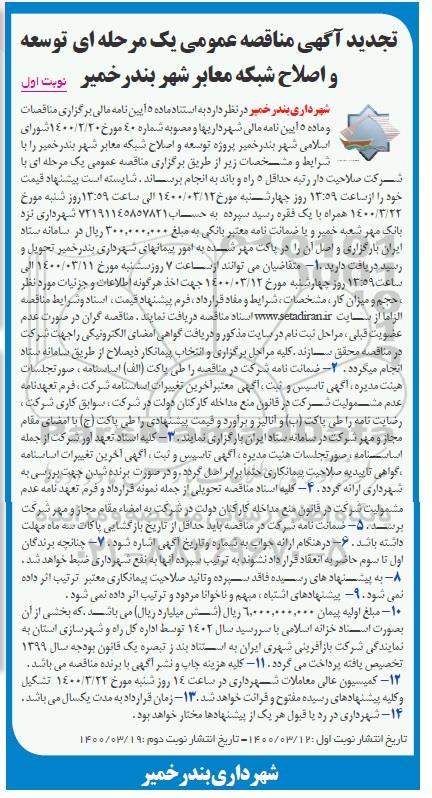 تجدید آگهی مناقصه عمومی یک مرحله ای توسعه
و اصلاح شبکه معابر شهر بندر خمیر
نوبت اول
شهرداری بندر خمیر در نظر دارد به استناد ماده ۵ آیین نامه مالی برگزاری مناقصات
و ماده ۵ آیین نامه مالی شهرداریها و مصوبه شماره ۴۰ مورخ ۱۴۰۰/۲/۲۰ شورای
اسلامی شهر بندر خمیر پروژه توسعه و اصلاح شبکه معابر شهر بندر خمیر را با
شرایط و مشخصات زیر از طریق برگزاری مناقصه عمومی یک مرحله ای با
شرکت صلاحیت دار رتبه حداقل ۵ راه و باند به انجام برساند . شایسته است پیشنهاد قیمت
خود را از ساعت ۱۳:۵۹ روز چهارشنبه مورخ ۱۴۰۰/۰۳/۱۲ الی ساعت ۱۳:۵۹ روز شنبه مورخ
۱۴۰۰/۳/۲۲ همراه با یک فقره رسید سپرده به حساب ۷۲۱۹۱۱۴۵۸۵۷۸۲۱ شهرداری نزد
بانک مهر شعبه خمیر و یا ضمانت نامه معتبر بانکی به مبلغ ۳۰۰,۰۰۰,۰۰۰ ریال در سامانه ستاد
ایران بارگزاری و اصل آن را در پاکت مهر شده به امور پیمانهای شهرداری بندر خمیر تحویل و
رسید دریافت دارید .۱- متقاضیان می توانند از ساعت ۷ روز سه شنبه مورخ ۱۴۰۰/۰۳/۱۱ الی
ساعت ۱۳:۵۹ روز چهارشنبه مورخ ۱۴۰۰/۰۳/۱۲ جهت اخذ هر گونه اطلاعات و جزئیات مورد نظر
حجم و میزان کار ، مشخصات ، شرایط و مفاد قرارداد ، فرم پیشنهاد قیمت ، اسناد و شرایط مناقصه
الزاما از سایت www.setadiran.ir اسناد مناقصه دریافت نمایند . مناقصه گران در صورت عدم
عضویت قبلی ، مراحل ثبت نام در سایت مذکور و دریافت گواهی امضای الکترونیکی را جهت شرکت
در مناقصه محقق سازند .کلیه مراحل برگزاری و انتخاب پیمانکار ذیصلاح از طریق سامانه ستاد
انجام میگردد . ۲- ضمانت نامه شرکت در مناقصه را طی پاکت (الف) اساسنامه ، صورتجلسات
هیئت مدیره ، آگهی تاسیس و ثبت ، آگهی معتبر آخرین تغییرات اساسنامه شرکت ، فرم تعهدنامه
عدم مشمولیت شرکت در قانون منع مداخله کارکنان دولت در شرکت ، سوابق کاری شرکت ،
رضایت نامه را طی پاکت (ب) و آنالیز و برآورد و قیمت پیشنهادی را طی پاکت (ج) با امضای مقام
مجاز و مهر شرکت در سامانه ستاد ایران بارگزاری نمایند .۳- کلیه اسناد تعهد آور شرکت از جمله
اساسنامه ، صورتجلسات هیئت مدیره ، آگهی تاسیس و ثبت ، آگهی آخرین تغییرات اساسنامه
،گواهی تاییدیه صلاحیت پیمانکاری حتما برابر اصل گردد .و در صورت برنده شدن جهت بررسی به
شهرداری ارائه گردد . ۴- کلیه اسناد مناقصه تحویلی از جمله نمونه قرارداد و فرم تعهد نامه عدم
مشمولیت شرکت در قانون منع مداخله کارکنان دولت در شرکت به امضاء مقام مجاز و مهر شرکت
برسد . ۵- ضمانت نامه شرکت در مناقصه باید حداقل از تاریخ بازگشایی پاکات سه ماه مهلت
داشته باشد . ۶- در هنگام ارائه جواب به شماره و تاریخ آگهی اشاره شود. ۷- چنانچه برندگان
اول تا سوم حاضر به انعقاد قرارداد نشوند به ترتیب سپرده آنها به نفع شهرداری ضبط خواهد شد .
۸- به پیشنهاد های رسیده فاقد سپرده و تائید صلاحیت پیمانکاری معتبر ترتیب اثر داده
نمی شود . ۹- پیشنهادهای اشتباه ، مبهم و ناخوانا مردود و ترتیب اثر داده نمی شود .
۱۰- مبلغ اولیه پیمان ۶,۰۰۰,۰۰۰,۰۰۰ ریال (شش میلیارد ریال) می باشد .که بخشی از آن
بصورت اسناد خزانه اسلامی با سررسید سال ۱۴۰۲ توسط اداره کل راه و شهرسازی استان به
نمایندگی شرکت بازآفرینی شهری ایران به استناد بند ز تبصره یک قانون بودجه سال ۱۳۹۹
تخصیص یافته پرداخت می گردد . ۱۱- کلیه هزینه چاپ و نشر آگهی با برنده مناقصه می باشد .
۱۲- کمیسیون عالی معاملات شهرداری در ساعت ۱۴ روز شنبه مورخ ۱۴۰۰/۳/۲۲ تشکیل
و کلیه پیشنهادهای رسیده مفتوح و قرائت خواهد شد .۱۳- زمان قرارداد به مدت یکسال می باشد .
۱۴- شهرداری در رد یا قبول هر یک از پیشنهادها مختار خواهد بود .
تاریخ انتشار نوبت اول :۱۴۰۰/۰۳/۱۲- تاریخ انتشار نوبت دوم :۱۴۰۰/۰۳/۱۹
شهرداری بندر خمیر